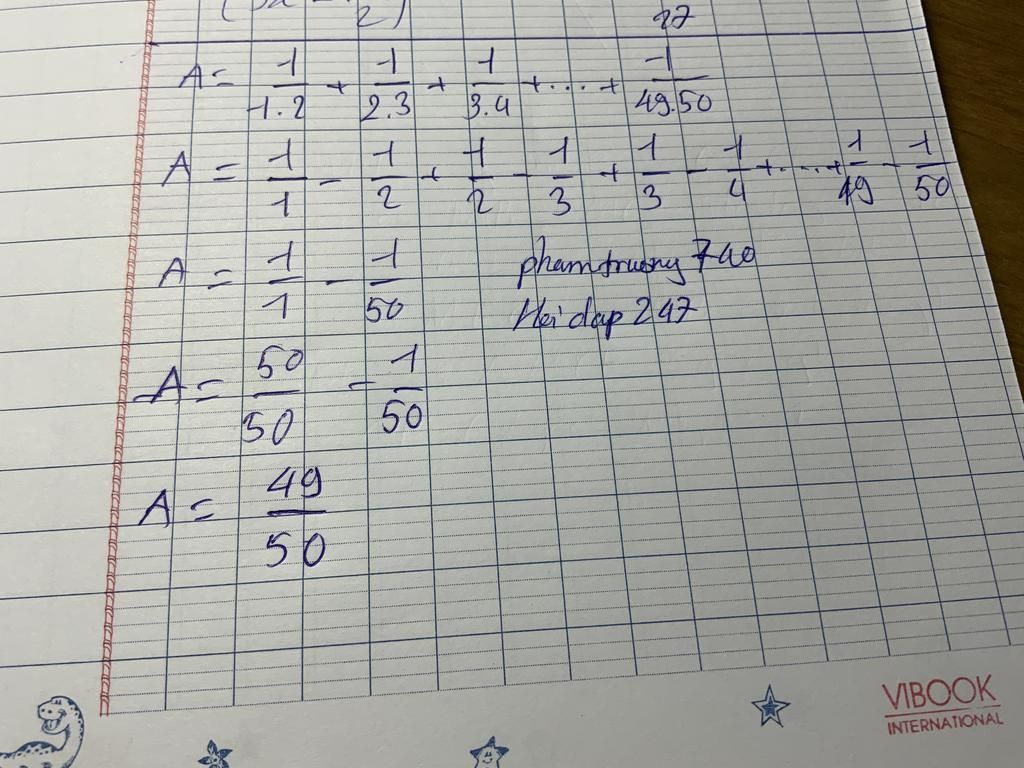 2)
27
A = 1/1.2 + 1/2.3 + 1/3.4 + .... + 1/49.50
A = 1/1 - 1/2 + 1/2 - 1/3 + 1/3 - 1/4 + .... + 1/49 - 1/50
A = 1/1 - 1/50
phamtruong 740
Hoi dap 247
A = 50/50 - 1/50
A = 49/50
VIBOOK
INTERNATIONAL